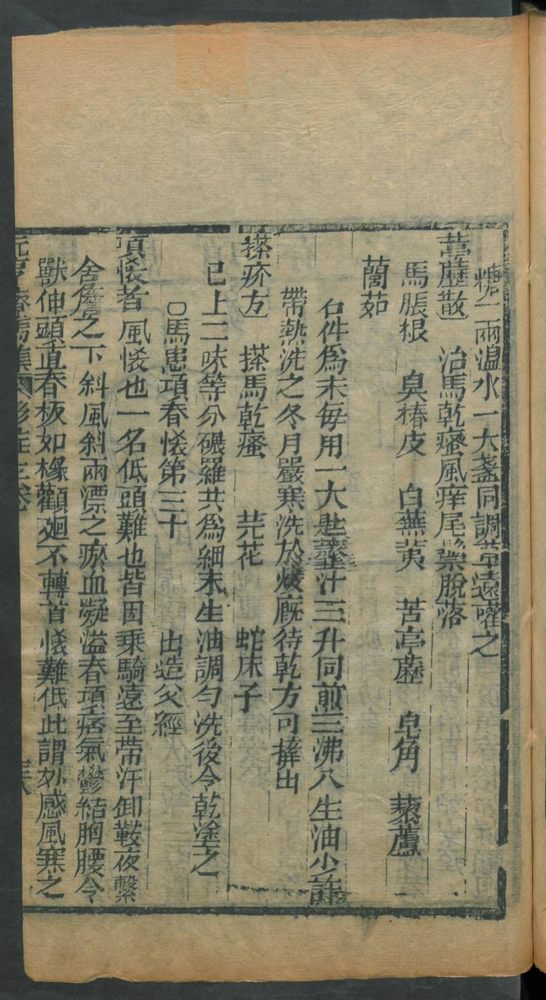 糖二兩溫水一大盞同調草遠嚾之
葶藶散　治馬乾瘙風痒尾鬃脫落
馬脹根　臭椿皮　白蕪荑　苦亭藶　皂角　藜蘆
蘭茹
右件爲末每用一大匙漿汁三升同煎三沸入生油少許
帶熱洗之冬月嚴寒洗於煖廐待乾方可摔出
搽疥方　搽馬乾瘙　芫花　蛇床子
已上二味等分碾羅共爲細末生油調勻洗後令乾塗之
○馬患項春恡第三十　出造父經
項恡者風恡也一名低頭難也皆因乘騎遠至帶汗卸鞍夜繫
舍簷之下斜風斜雨漂之瘀血凝溢春項痞氣鬱結胸腰令
獸伸頭直春板如椽觀廻不轉首恡難低此謂外感風寒之